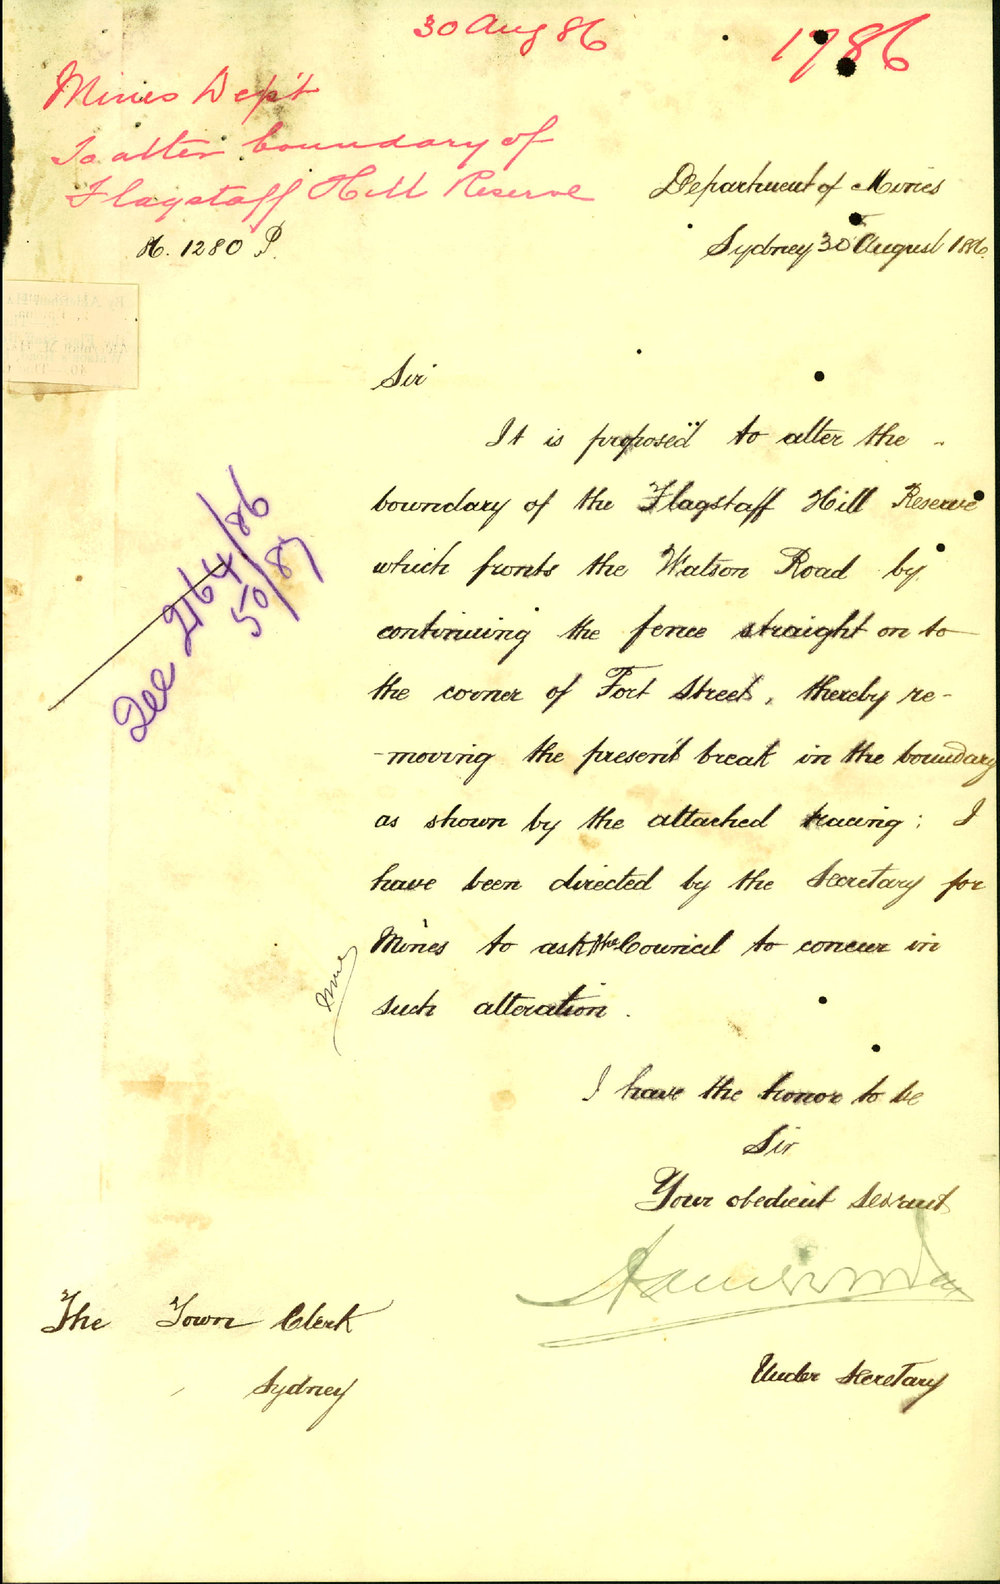 30 Aug 86
1786
Mines Dep't
To alter boundary of
Flagstaff Hill Reserve
86. 1280 P.
Department of Mines
Sydney 30 August 1886.
Sir
It is proposed to alter the
boundary of the Flagstaff Hill Reserve
which fronts the Watson Road by
continuing the fence straight on to
the corner of Fort Street, thereby re-
-moving the present break in the boundary
as shown by the attached tracing; I
have been directed by the Secretary for
Mines to ask the Council to concur in
such alteration.
See 2164/86
50/87
I have the honor to be
Sir
Your obedient Servant
Under Secretary
The Town Clerk
Sydney